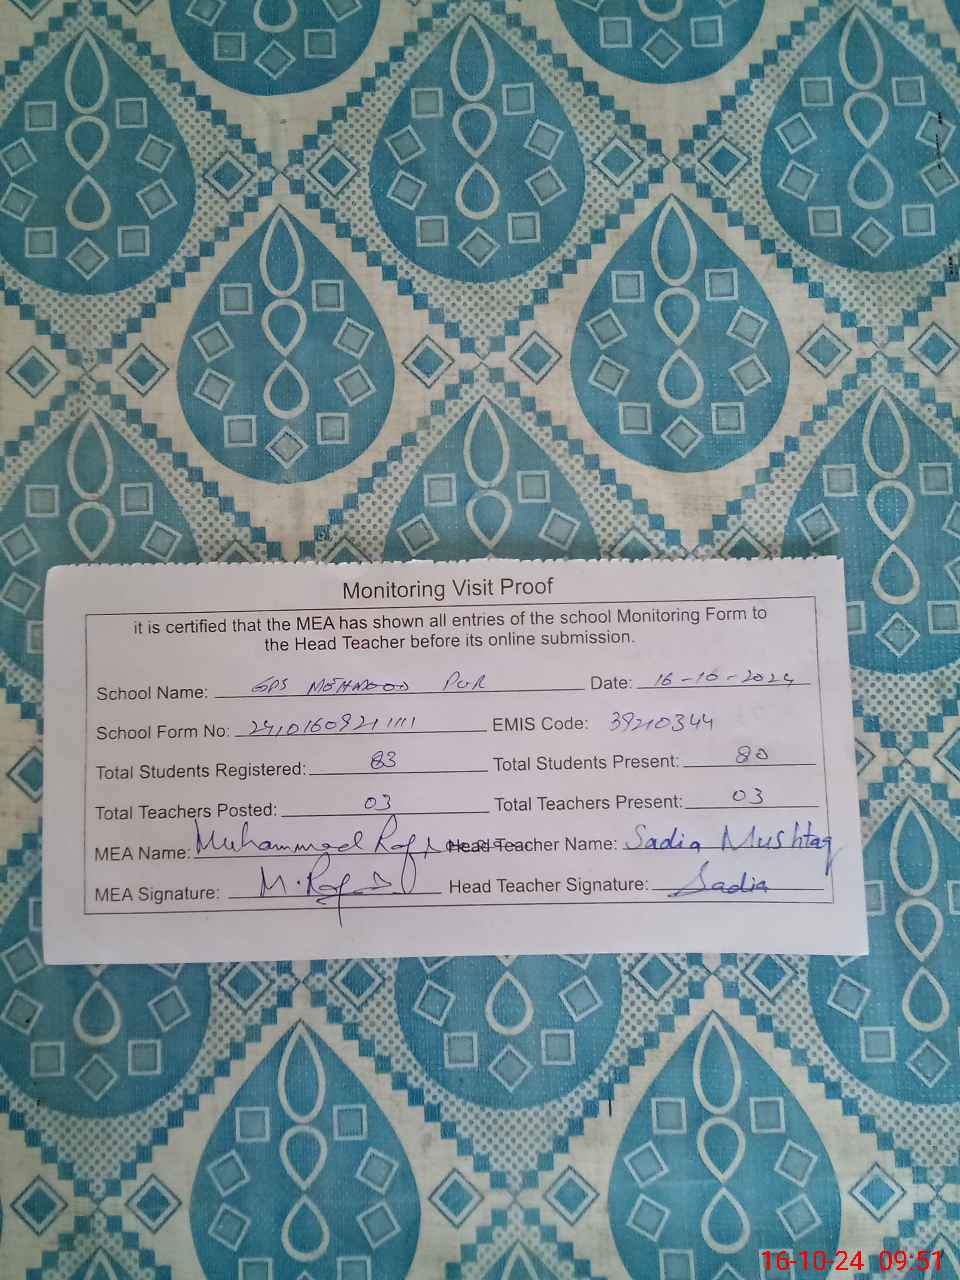 Monitoring Visit Proof
it is certified that the MEA has shown all entries of the school Monitoring Form to
the Head Teacher before its online submission.
School Name: GPS MEHMOOD PUR Date: 16-10-2024
School Form No: EMIS Code: 39210344
Total Students Registered: 83 Total Students Present: 80
Total Teachers Posted: 03 Total Teachers Present: 03
MEA Name: Muhammad Head Teacher Name: Sadia Mushtaq
MEA Signature: Head Teacher Signature: Sadia
16-10-24 09:51